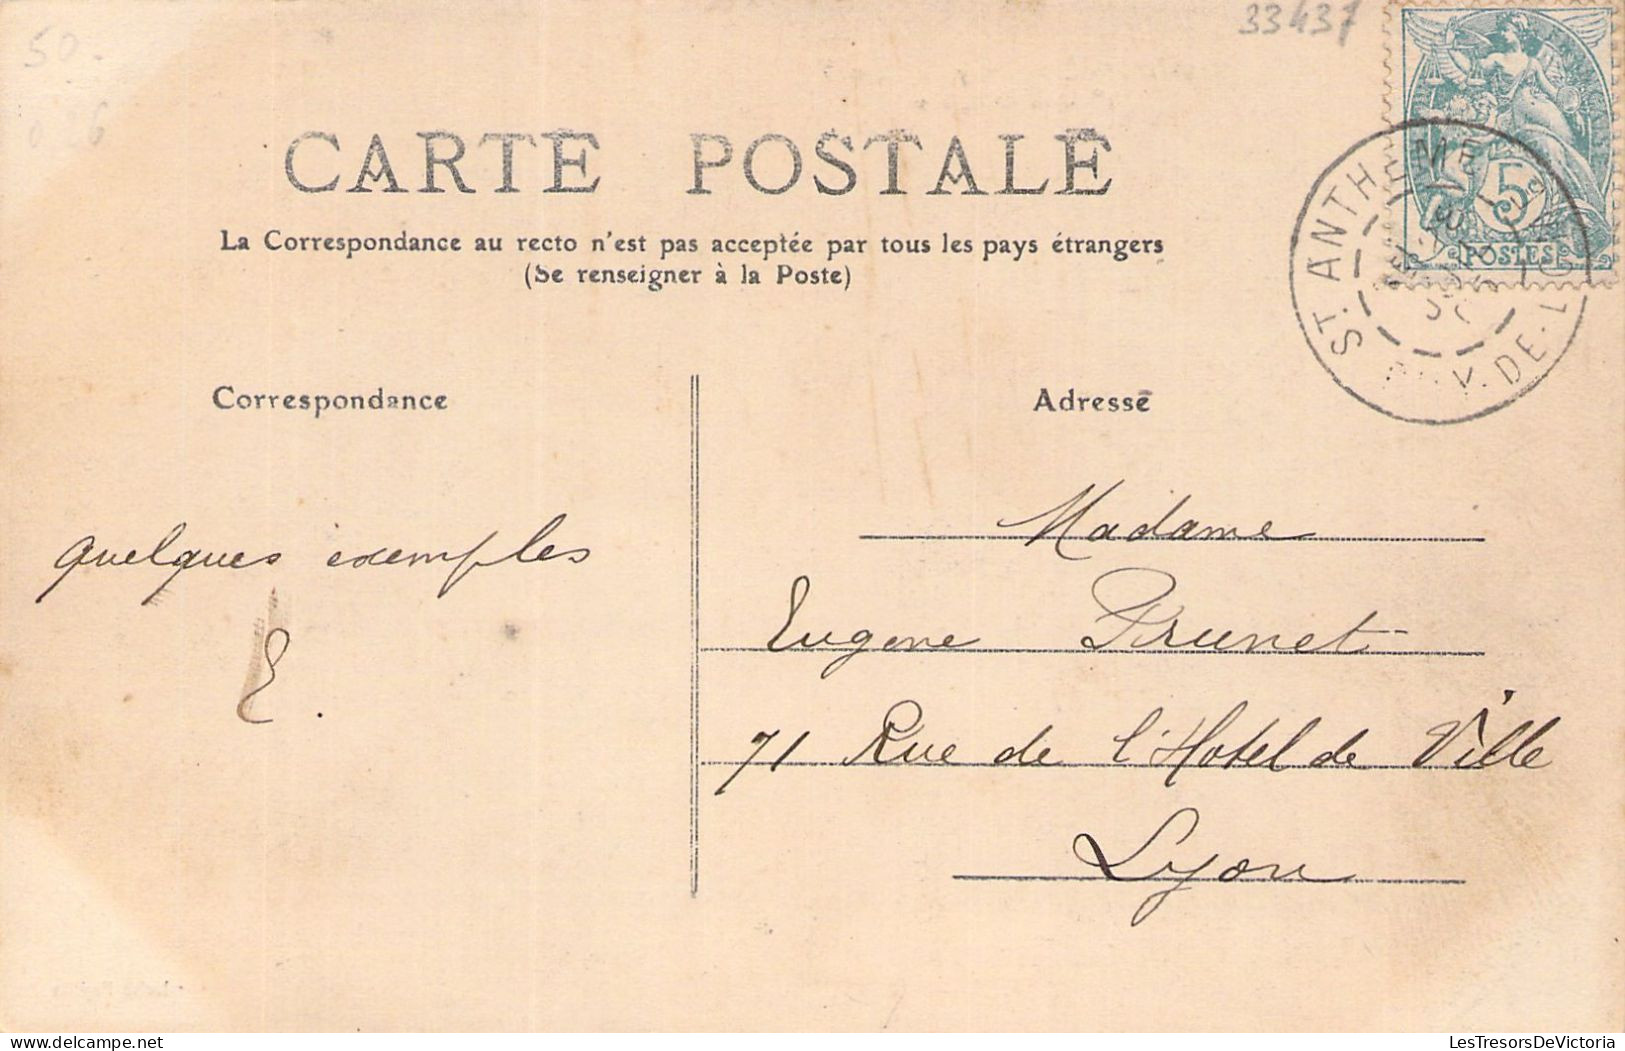 33437
50.
0 26
CARTE POSTALE
La Correspondance au recto n'est pas acceptée par tous les pays étrangers
(Se renseigner à la Poste)
5
POSTES
ST. ANTHEME
P.-Y.-DE-
Correspondance
Adresse
quelques exemples
E.
Madame
Eugene Prunet
71 Rue de l'Hotel de Ville
Lyon
LesTresorsDeVictoria